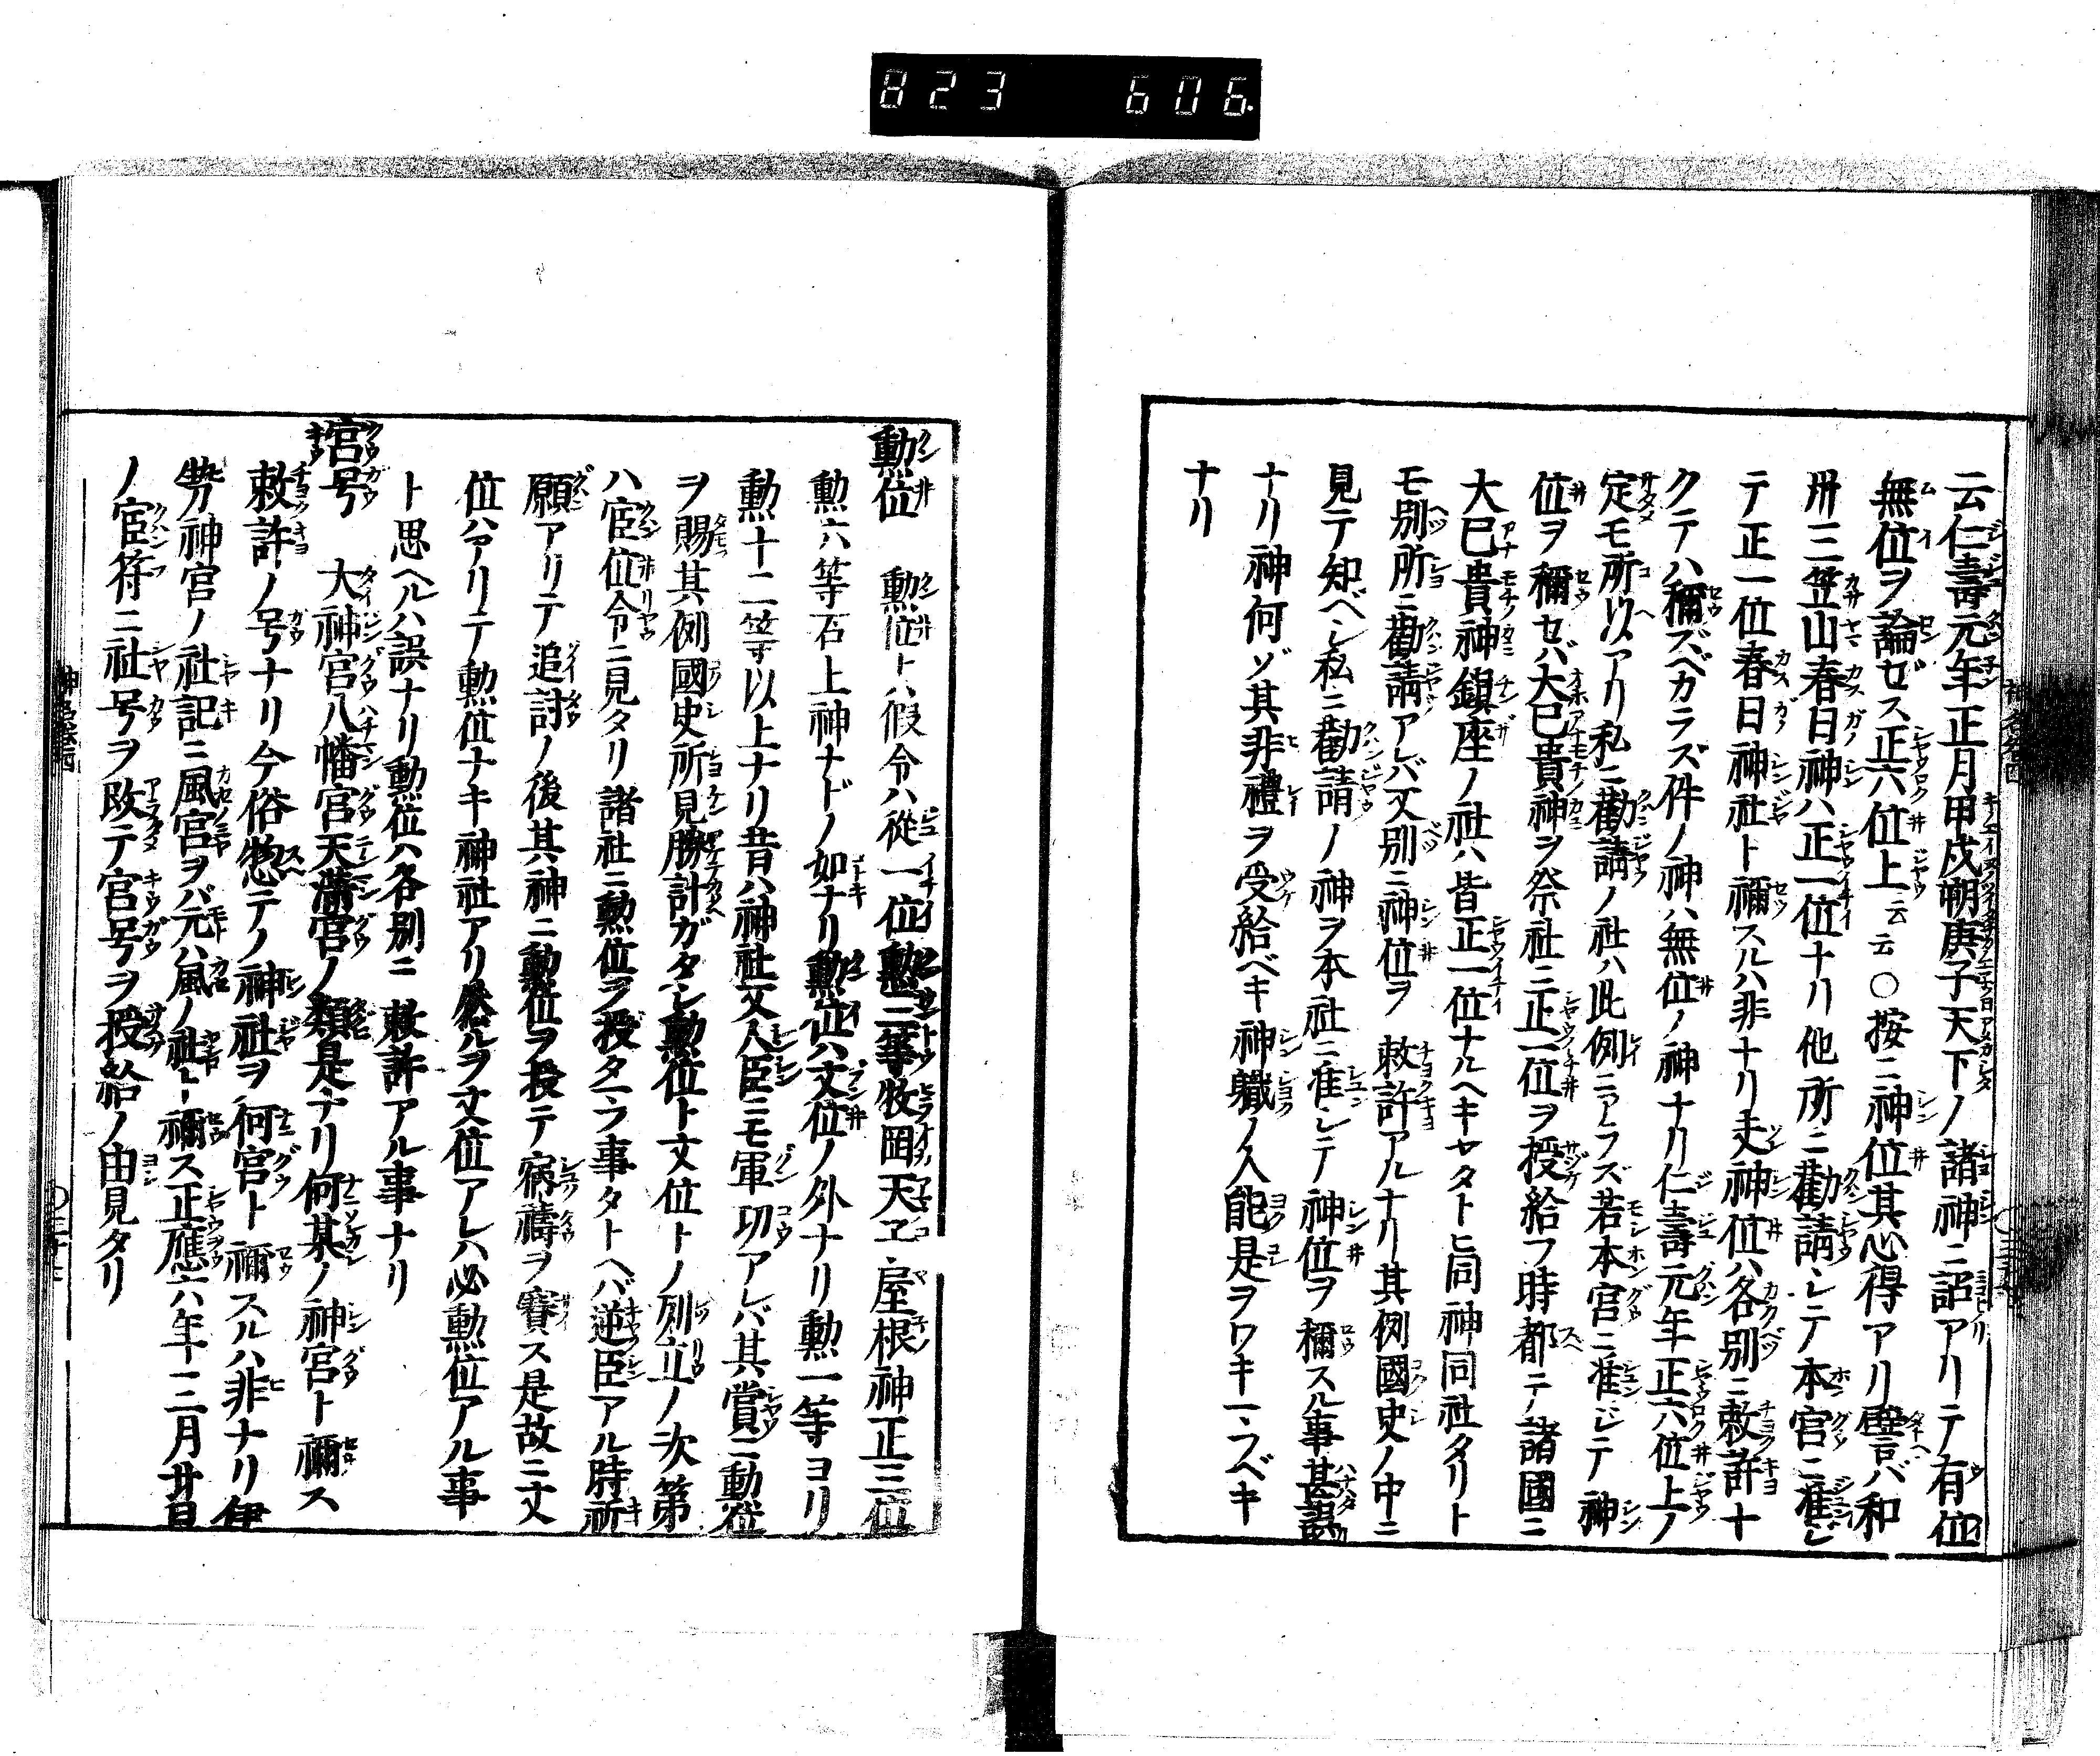 823 606
云仁壽元年正月甲戌朔庚子天下ノ諸神ニ詔アリテ有位
無位ヲ論ゼス正六位上云云○按ニ神位其心得アリ譬ヘバ和
州三笠山春日神ハ正一位ナリ他所ニ勸請シテ本宮ニ准ジ
テ正一位春日神社ト稱スルハ非ナリ夫神位ハ各別ニ敕許ナ
クテハ稱ズベカラズ件ノ神ハ無位ノ神ナリ仁壽元年正六位上ノ
定モ所以アリ私ニ勸請ノ社ハ此例ニアラズ若本宮ニ准ジテ神
位ヲ稱セバ大已貴神ヲ祭社ニ正一位ヲ授給フ時都テ諸國ニ
大已貴神鎮座ノ社ハ皆正一位ナルヘキヤタトヒ同神同社タリト
モ別所ニ勸請アレバ又別ニ神位ヲ 敕許アルナリ其例國史ノ中ニ
見テ知ベシ私ニ勸請ノ神ヲ本社ニ准シテ神位ヲ稱スル事甚謬
ナリ神何ゾ其非禮ヲ受給ベキ神職ノ人能是ヲワキマフベキ
ナリ
勲位 勲位トハ假令ハ從一位勲三等牧岡天ヱ屋根神正三位
勲六等石上神ナドノ如ナリ勲位ハ文位ノ外ナリ勲一等ヨリ
勲十二等以上ナリ昔ハ神社又人臣ニモ軍功アレバ其賞ニ勲位
ヲ賜其例國史所見勝計ガタシ勲位ト文位トノ列立ノ次第
ハ官位令ニ見タリ諸社ニ勲位ヲ授タマフ事タトヘバ逆臣アル時祈
願アリテ追討ノ後其神ニ勲位ヲ授テ病禱ヲ賽ス是故ニ文
位ハアリテ勲位ナキ神社アリ然ルヲ文位アレハ必勲位アル事
ト思ヘルハ誤ナリ勲位ハ各別ニ 敕許アル事ナリ
宮号 大神宮八幡宮天滿宮ノ類是ナリ何某ノ神宮ト稱ス
敕許ノ号ナリ今俗惣テノ神社ヲ何宮ト稱スルハ非ナリ伊
勢神宮ノ社記ニ風宮ヲバ元ハ風ノ社ト稱ス正應六年三月廿日
ノ官符ニ社号ヲ改テ宮号ヲ授給ノ由見タリ